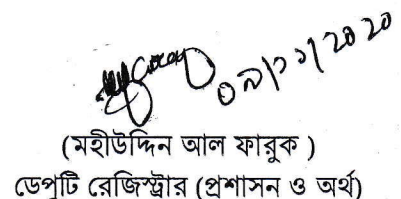 ০৯/১১/২০২০
(মহীউদ্দিন আল ফারুক )
ডেপুটি রেজিস্ট্রার (প্রশাসন ও অর্থ)